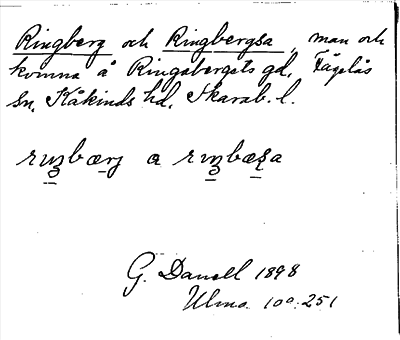 Ringberg och Ringbergsa, man och
kvinna å Ringabergets gd, Fågelås
sn, Kåkinds hd, Skarab. l.
a
G. Danell 1898
Ulma 100:251